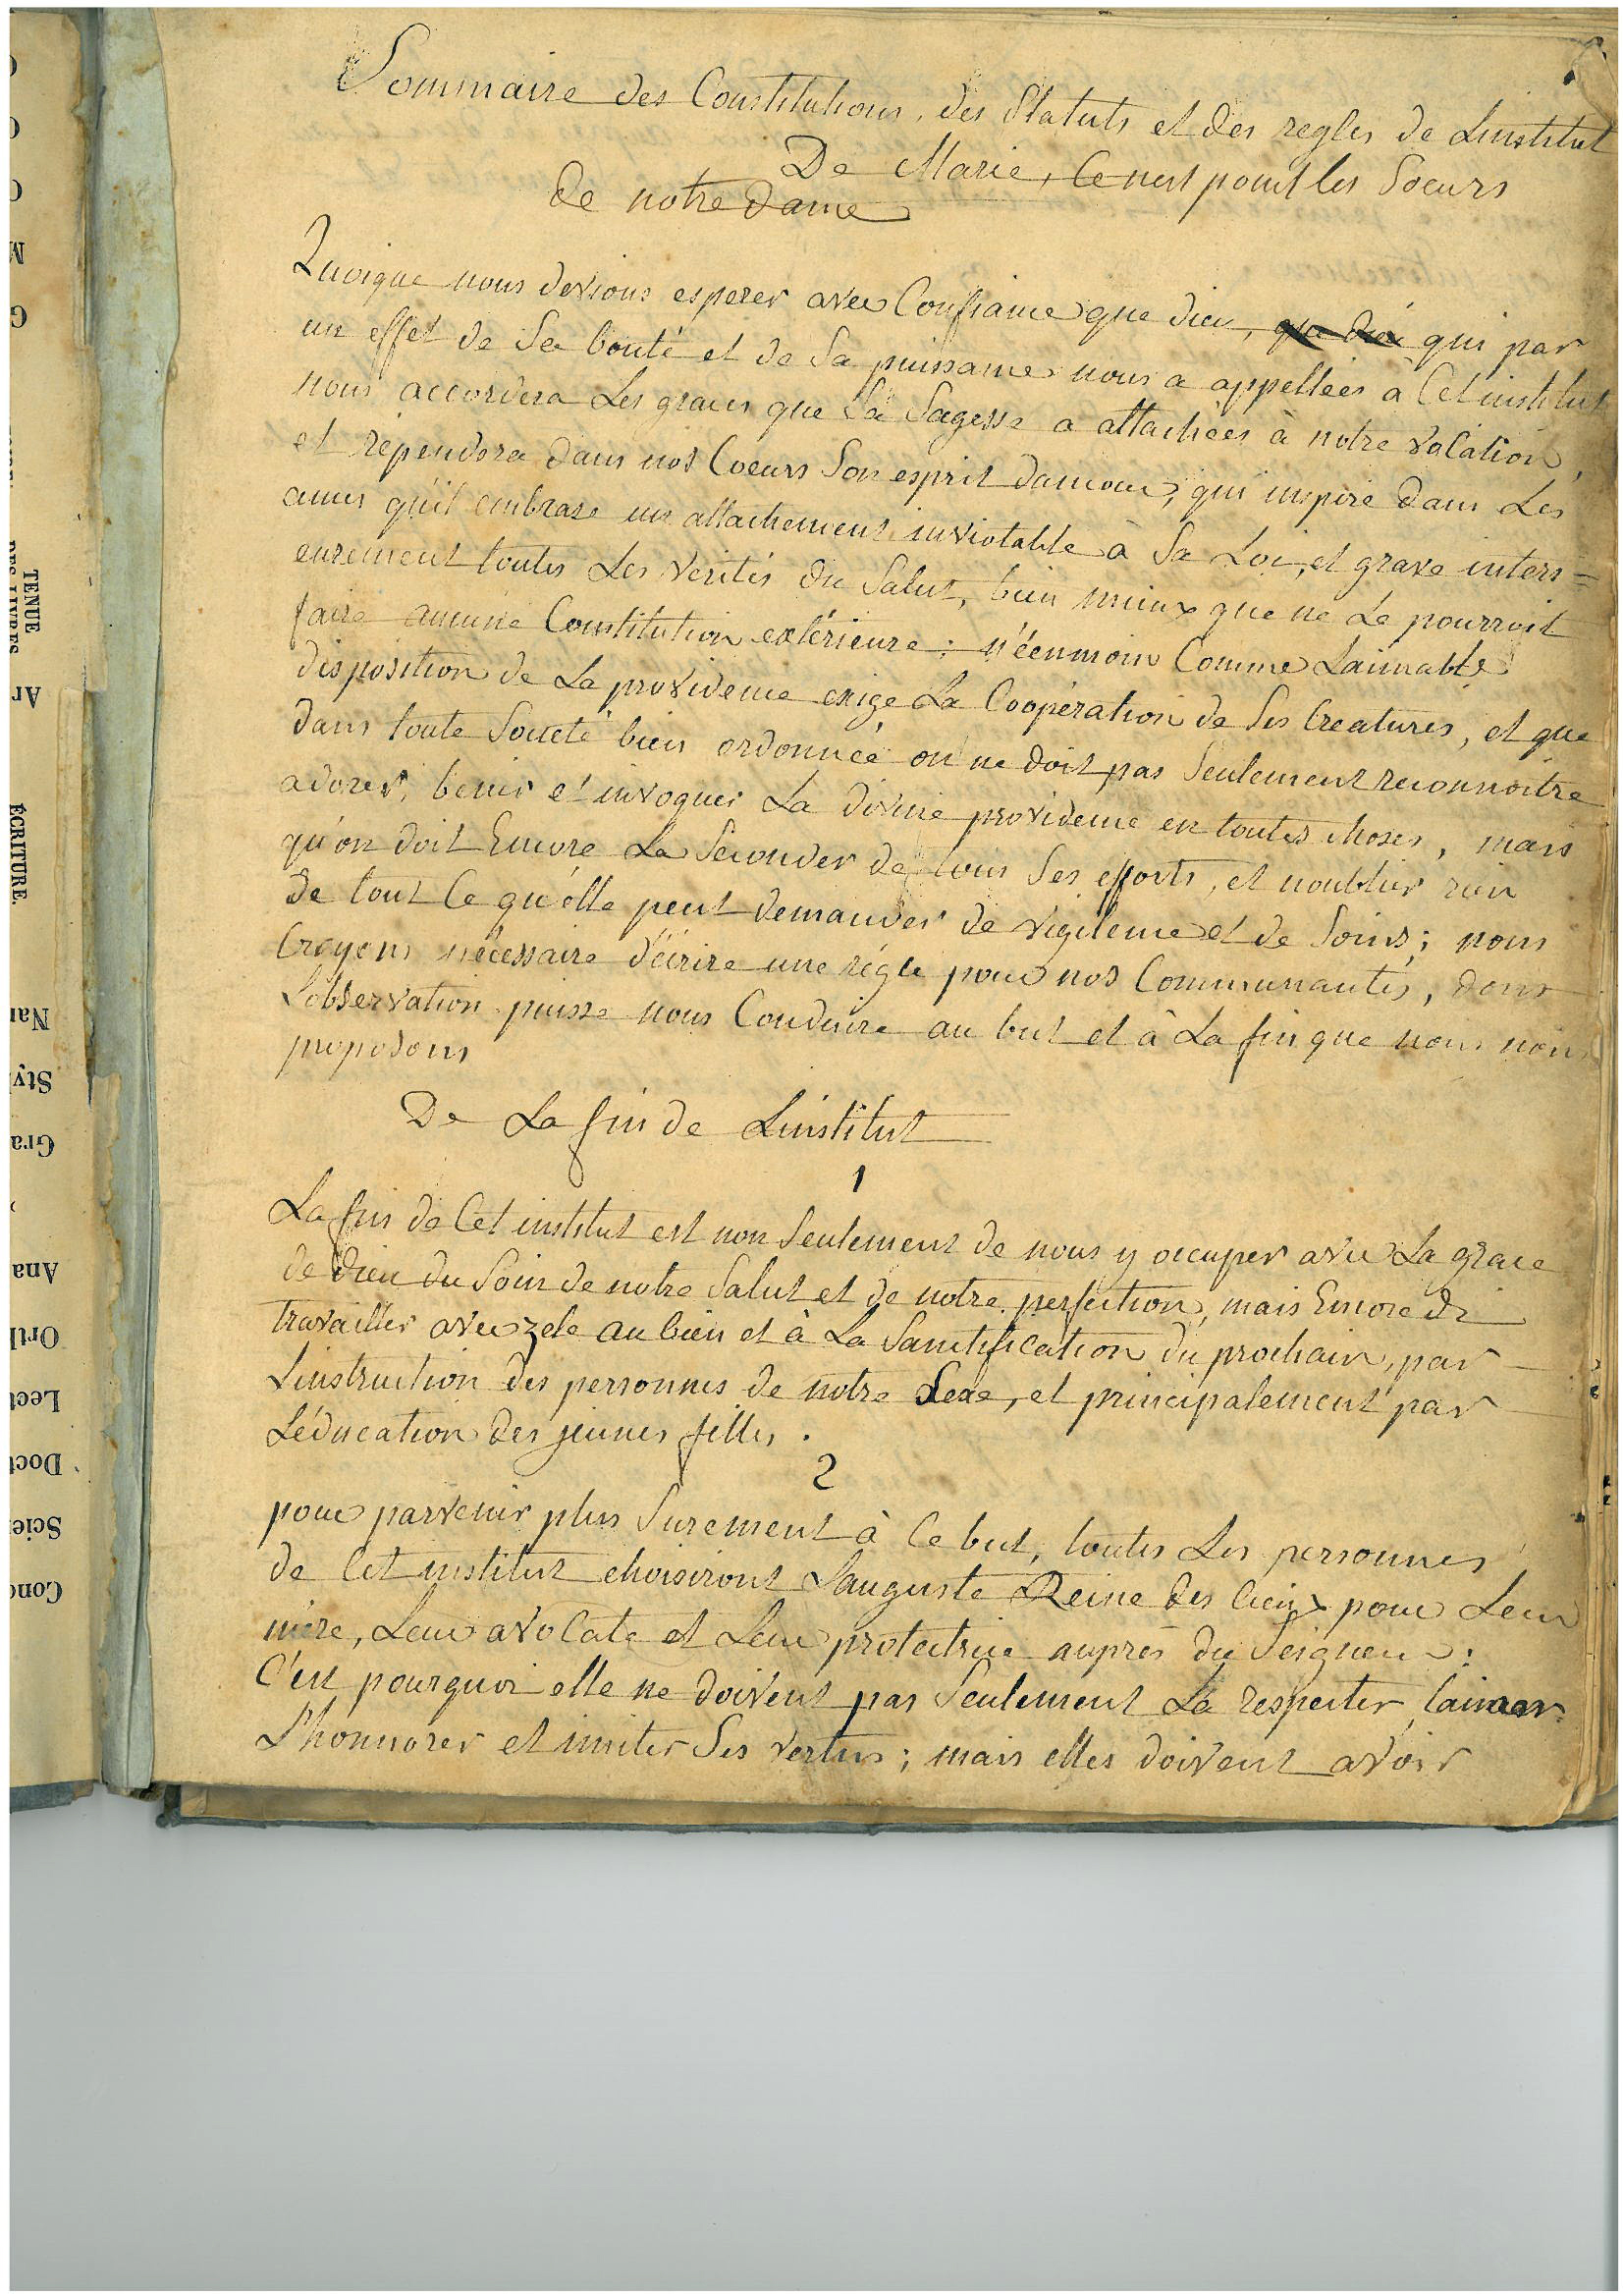 Sommaire des Constitutions, des Statuts et des regles de Linstitut
De Marie, Ce nest point les Soeurs
de notre dame
Quoique nous devions esperer avec Confiance que dieu, que dieu qui par
un effet de Sa bonté et de Sa puissance nous a appellées à Cet institut
nous accordera Les graces que Sa Sagesse a attachées à notre vocation,
et rependera dans nos Coeurs Son esprit damour, qui inspire dans Les
ames qu'il embrase un attachement inviotable à Sa Loi, et grave interi=
eurement toutes Les verités du Salut, bien mieux que ne Le pourroit
faire aucune Constitution extérieure; n'éenmoin Comme Laimable
disposition de La providence exige La Coopération de Ses Creatures, et que
dans toute Societé bien ordonnée on ne doit pas Seulement reconnoitre
adorer, benir et invoquer La divine providence en toutes choses, mais
qu'on doit Encore La Seconder de tous Ses efforts, et noublier rien
de tout Ce qu'elle peut demander de vigilence et de Soins; nous
Croyons nécessaire d'écrire une régle pour nos Communautés, dont
L'observation puisse nous Conduire au but et à La fin que nous nous
proposons
De La fin de Linstitut
1
La fin de Cet institut est non Seulement de nous y occuper avec La grace
de dieu du Soin de notre Salut et de notre perfection, mais Encore de
travailler avec zele au bien et à La Sanctification du prochain, par
Linstruction des personnes de notre Sexe, et principalement par
L'éducation des jeunes filles.
2
pour parvenir plus Surement à Ce but, toutes Les personnes
de Cet institut choisiront L'auguste Reine des Cieux pour Leur
mère, Leur avoCate et Leur protectrice auprès du Seigneur:
C'est pourquoi elle ne doivent pas Seulement La respecter, l'aimer
L'honnorer et imiter Ses vertus; mais elles doivent avoir
TENUE
DES LIVRES
Ar
ÉCRITURE.
Nar
Sty
Gra
Ana
Ortl
Lect
Doct
Scie
Conc